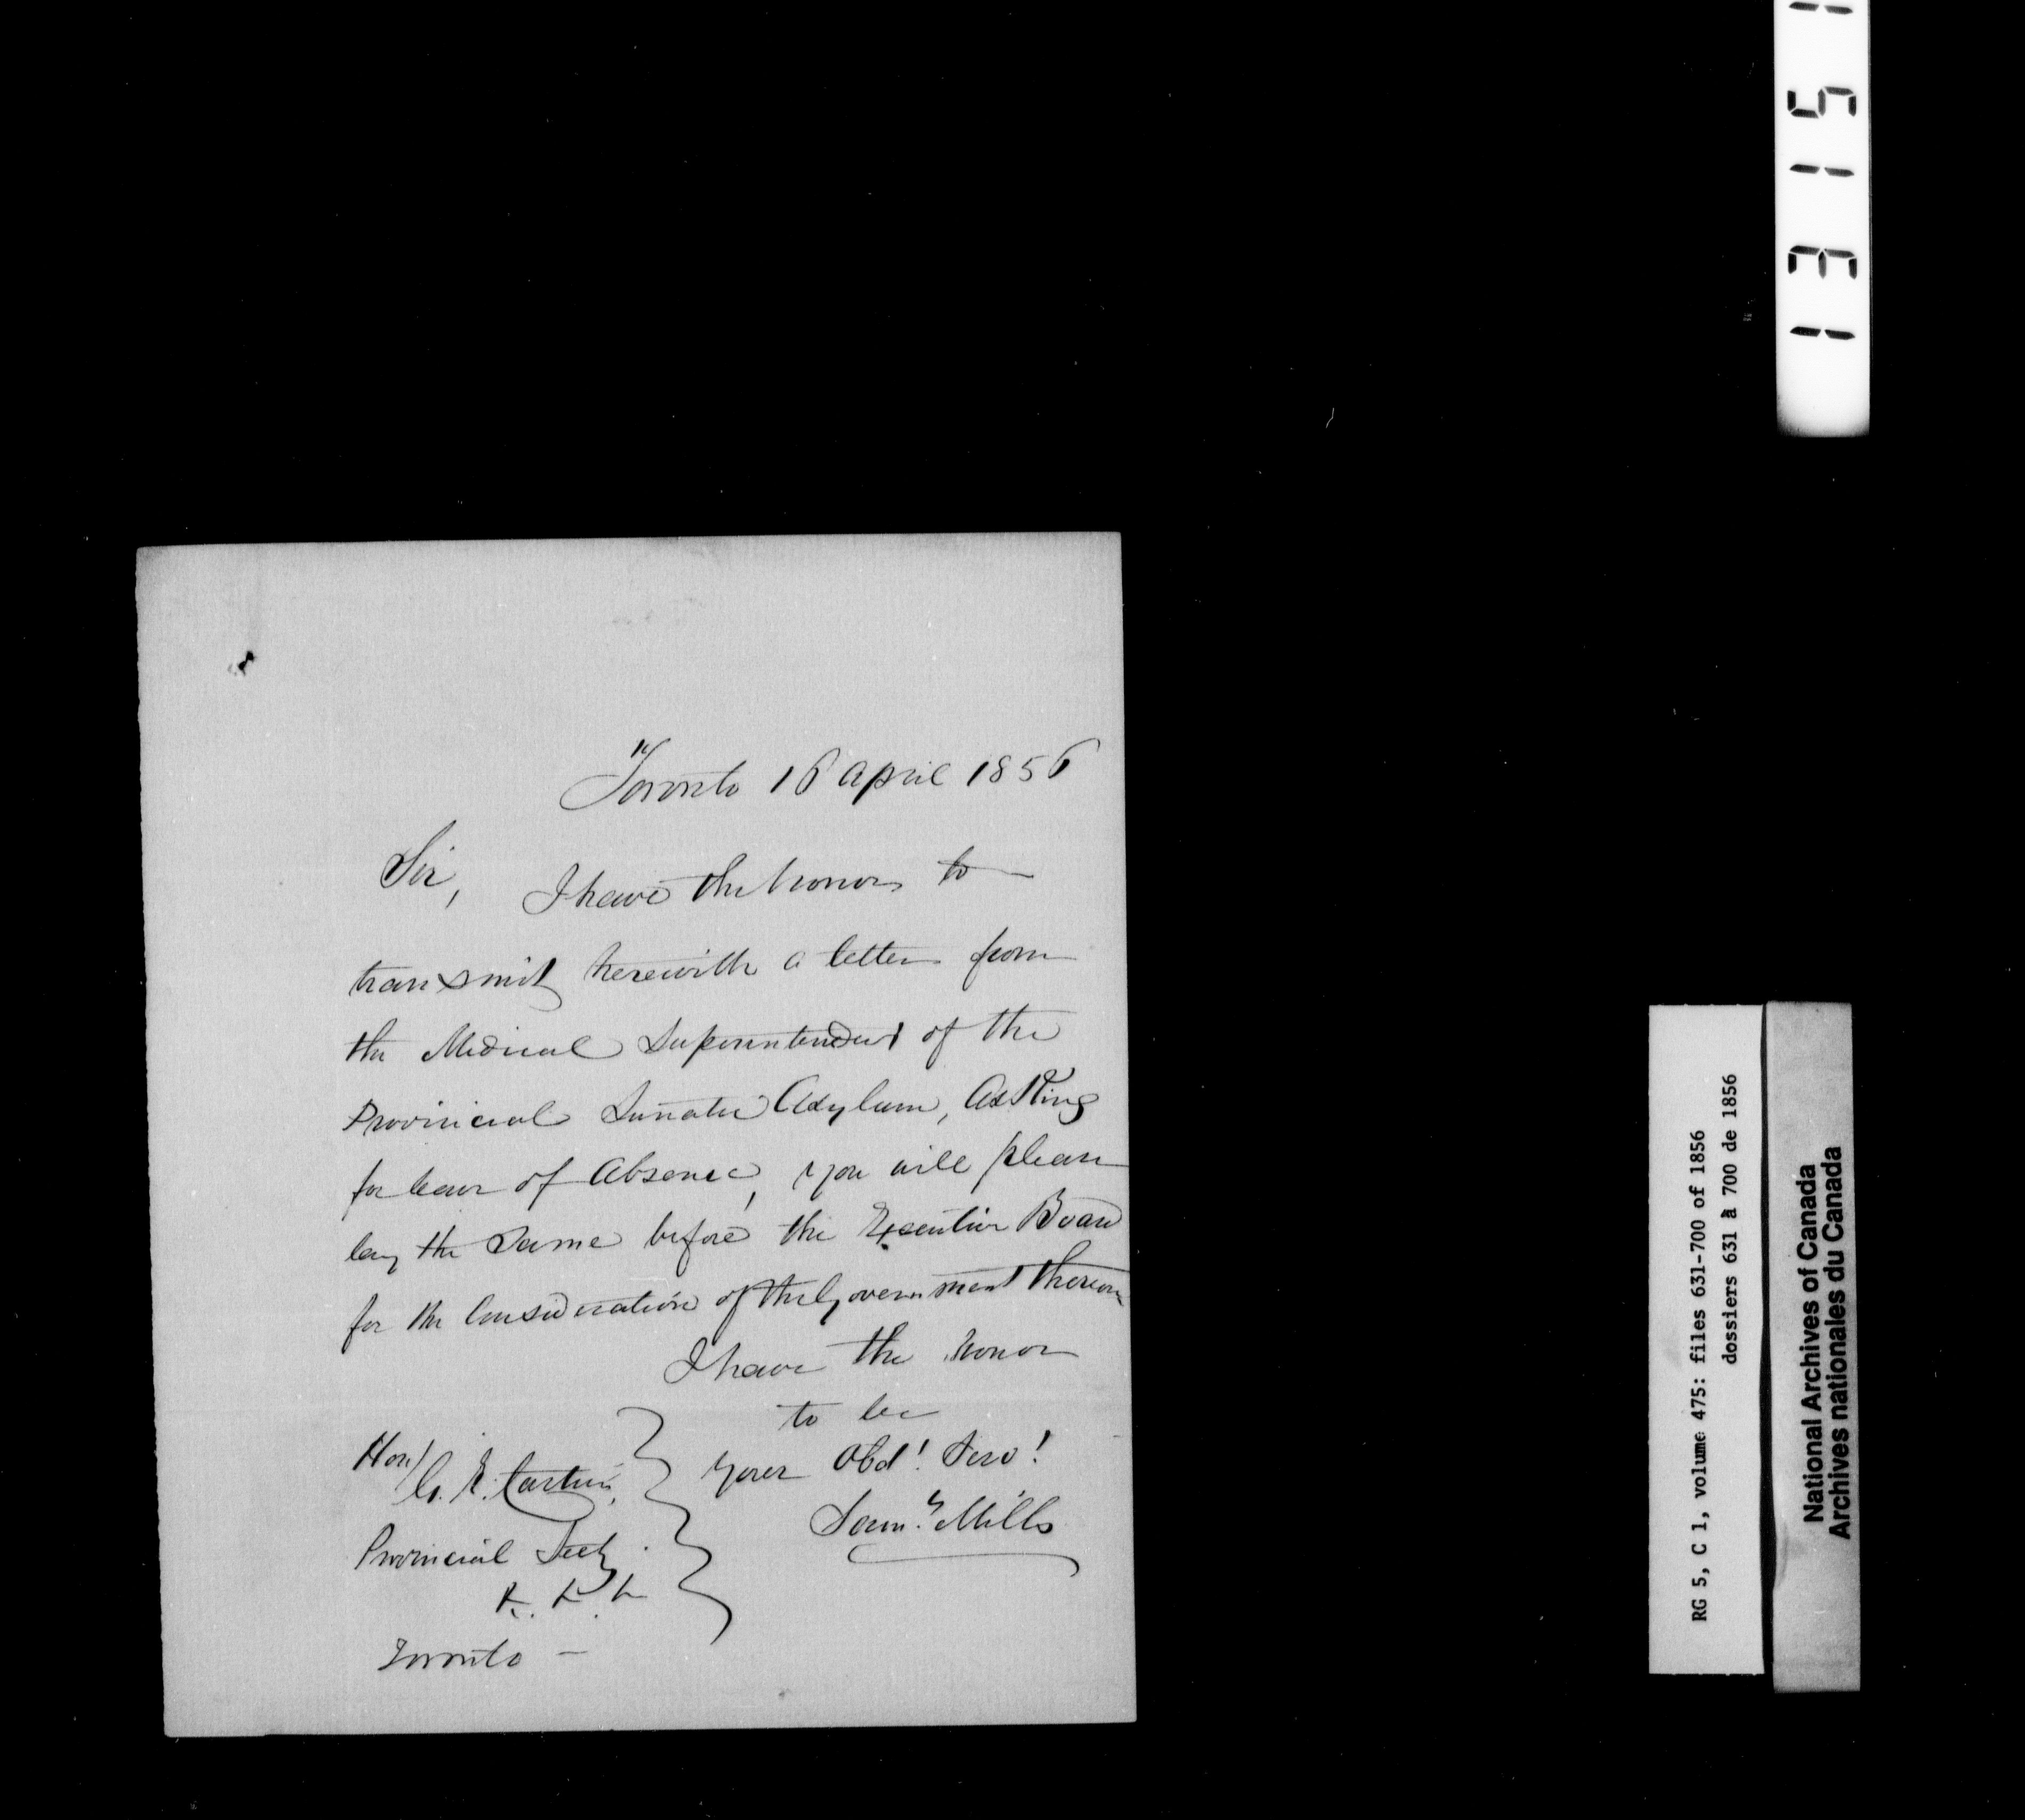 Toronto 16 April 1856
Sir, I have the honor to
transmit herewith a letter from
the Medical Superintendent of the
Provincial Lunatic Asylum, Asking
for leave of Absence, you will please
lay the Same before the Executive Board
for the Consideration of the Government thereon
I have the honor
to be
your Obdt Servt
Saml Mills
Honl
G. E. Cartier,
Provincial Secty.
Toronto —
13151
RG 5, C 1, volume 475: files 631-700 of 1856
dossiers 631 à 700 de 1856
National Archives of Canada
Archives nationales du Canada